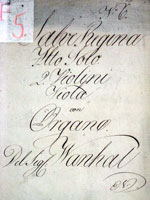 No. 6.
F
5.
Salve Regina
Alto Solo
2 Violini
Viola
con
Organo.
Del Sigl Wanhal